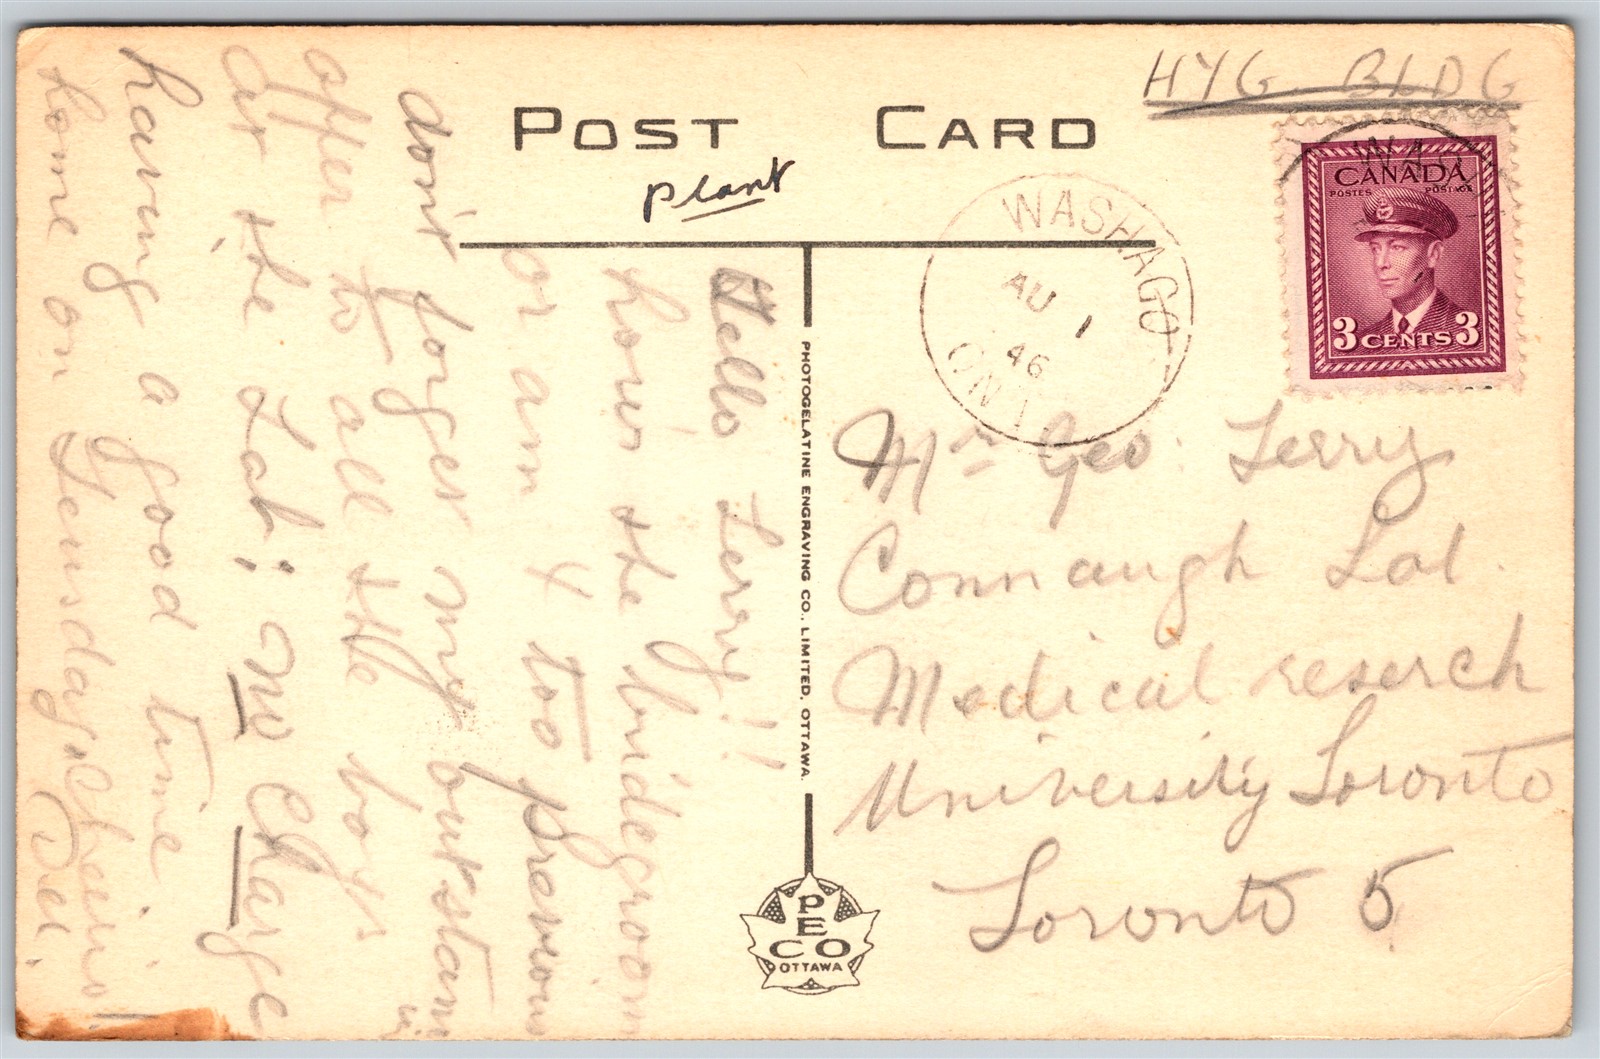 HYG. BLDG
POST CARD
plant
WASHAGO
AU 1
46
ONT.
CANADA
POSTES POSTAGE
3 CENTS 3
Mr Geo. Terry
Connaugh Lab.
Medical reserch
University Toronto
Toronto 5
Hello Terry!!
how's the bridegroom
or am I too previous
don't forget my outstand
offer to all the boys
at the Lab: no charge
having a good time
home on Teusday. Cheerio!
PHOTOGELATINE ENGRAVING CO., LIMITED, OTTAWA.
PECO
OTTAWA